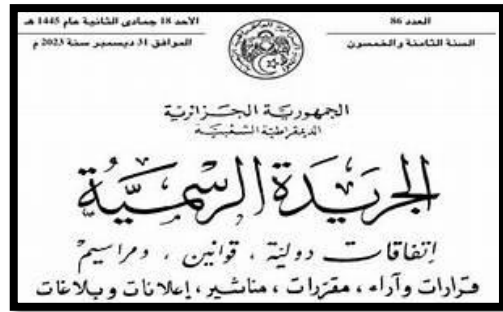 العدد 86
السنة الثامنة والخمسون
الأحد 18 جمادى الثانية عام 1445 هـ
الموافق 31 ديسمبر سنة 2023 م
الجمهورية الجزائرية
الديمقراطية الشعبية
الجريدة الرسمية
إتفاقات دولية ، قوانين ، ومراسيم
قرارات وآراء ، مقررات ، مناشير ، إعلانات وبلاغات